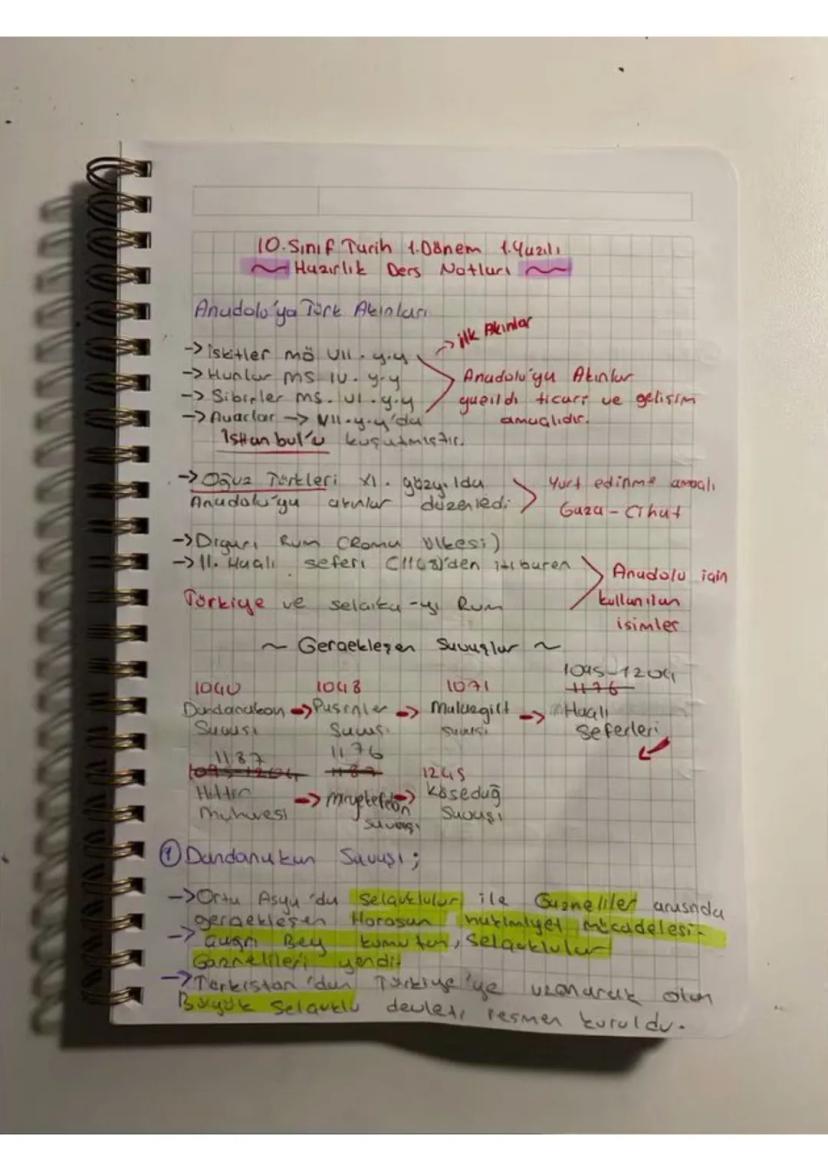 10.Sınıf Tarih 1.Dönem 1.Yazılı
~ Hazırlık Ders Notları ~
Anadolu'ya Türk Akınları
-> İskitler mö VII. y.y
-> Hunlar MS IV. y.y
-> Sibirler MS. VI. y.y
-> Avarlar -> VII. y.y'da
İstanbul'u kuşatmıştır.
-> İlk Akınlar
Anadolu'ya Akınlar
yapıldı ticari ve gelişim
amaçlıdır.
-> Oğuz Türkleri XI. yüzyılda
Anadolu'ya akınlar düzenledi
Yurt edinme amaçlı
Gaza-Cihat
-> Diyarı Rum (Roma Ülkesi)
-> II. Haçlı seferi (1148)'den itibaren
Türkiye ve selaiku-yı Rum
Anadolu için
kullanılan
isimler
~ Gerçekleşen Savaşlar ~
1040 1048 1071 1095-1204
1176
Dandanakan -> Pasinler -> Malazgirt -> Haçlı
Savaşı Savaşı savaşı Seferleri
1187 1176
1095-1204 1187 1245
Hıttin -> Miryokefalon -> Kösedağ
Muharesi savaşı Savaşı
① Dandanakan Savaşı;
-> Orta Asya'da Selçuklular ile Gazneliler arasında
gerçekleşen Horasan hakimiyet mücadelesi-
-> Çağrı Bey komutan, Selçuklular
Gaznelileri yendi.
-> Türkistan'dan Türkiye'ye uzanarak olan
Büyük Selçuklu devleti resmen kuruldu.